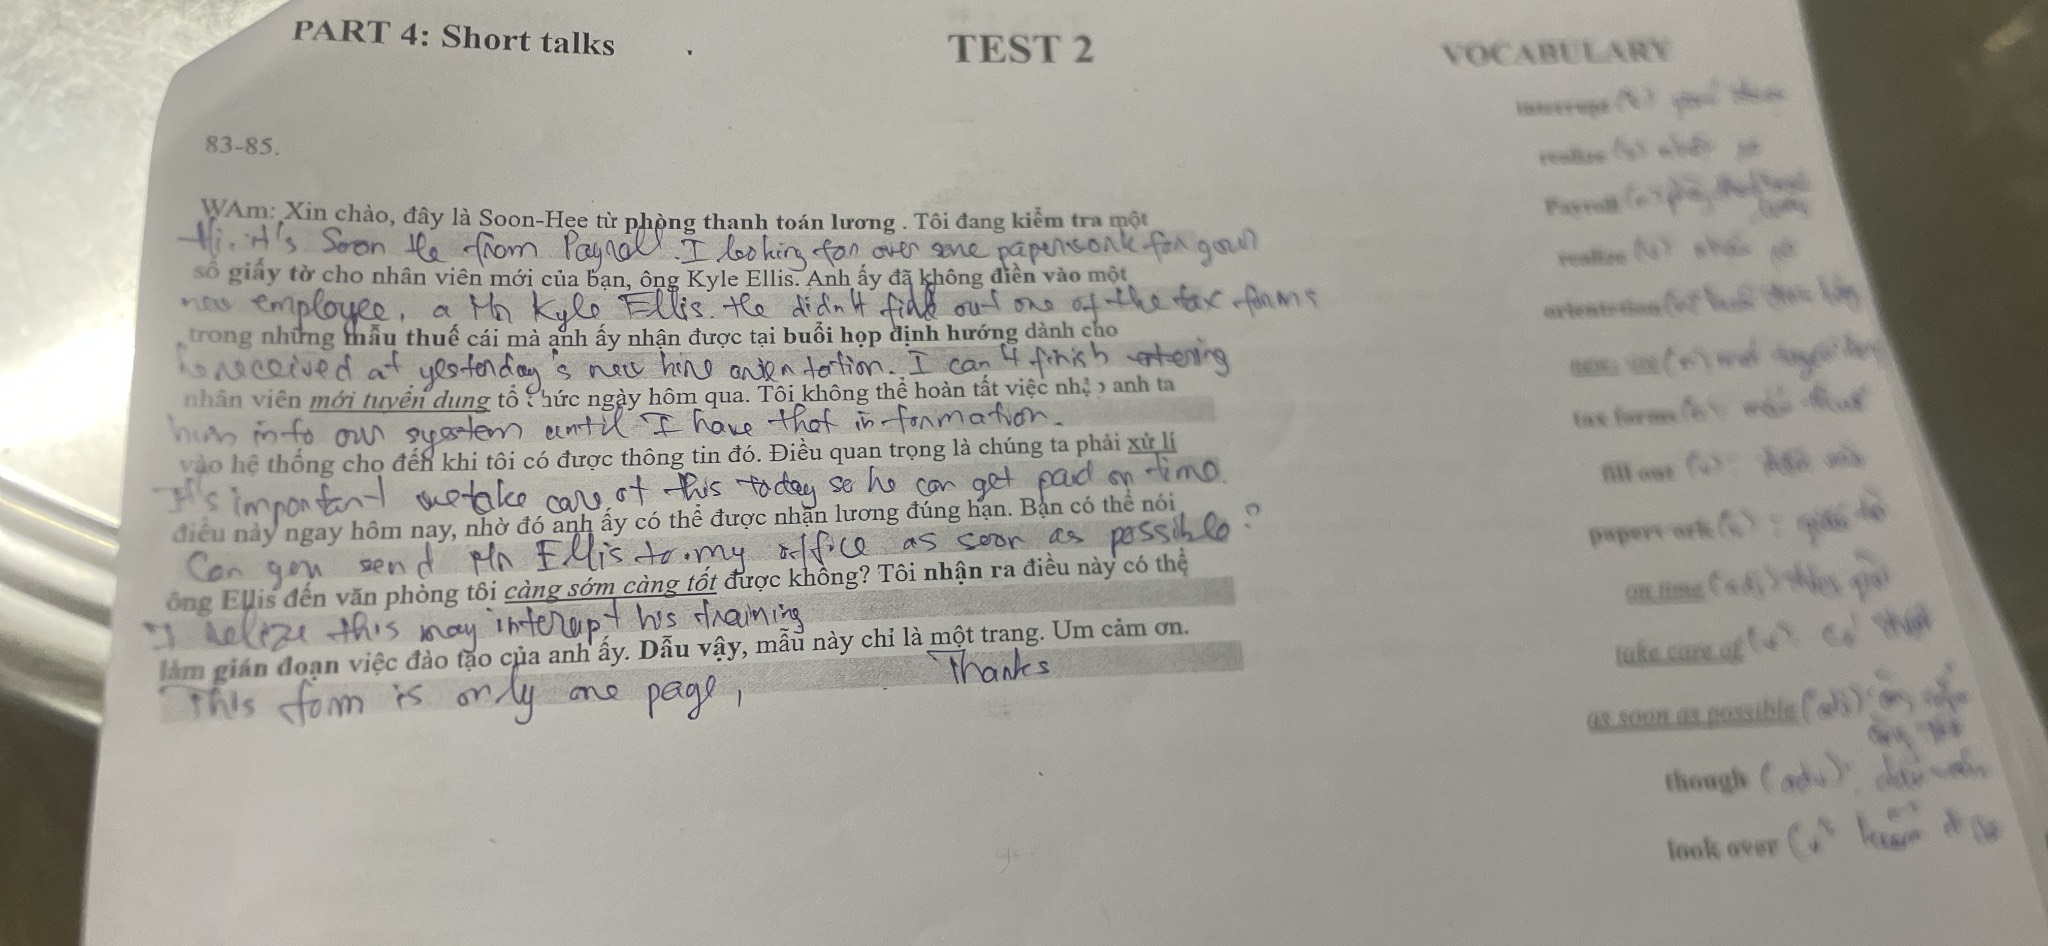 PART 4: Short talks
TEST 2
VOCABULARY
83-85.
WAm: Xin chào, đây là Soon-Hee từ phòng thanh toán lương . Tôi đang kiểm tra một
Hi. it's Soon He from Payroll. I looking for over some paperwork for your
số giấy tờ cho nhân viên mới của bạn, ông Kyle Ellis. Anh ấy đã không điền vào một
new employee, a Mr Kyle Ellis. He didn't out one of the tax forms
trong những mẫu thuế cái mà anh ấy nhận được tại buổi họp định hướng dành cho
he received at yesterday's new hire orientation. I can't finish entering
nhân viên mới tuyển dụng tổ chức ngày hôm qua. Tôi không thể hoàn tất việc anh ta
him into our system until I have that information.
vào hệ thống cho đến khi tôi có được thông tin đó. Điều quan trọng là chúng ta phải xử lí
It's important we take care of this today so he can get paid on time.
điều này ngay hôm nay, nhờ đó anh ấy có thể được nhận lương đúng hạn. Bạn có thể nói
Can you send Mr Ellis to my office as soon as possible?
ông Ellis đến văn phòng tôi càng sớm càng tốt được không? Tôi nhận ra điều này có thể
I this may interupt his training
làm gián đoạn việc đào tạo của anh ấy. Dẫu vậy, mẫu này chỉ là một trang. Um cảm ơn.
This form is only one page, Thanks
interrupt (v)
realize (v) nhận ra
Payroll (n)
realize (v) nhận ra
orientation
new hire (n)
tax forms (n): mẫu thuế
fill out (v): điền vào
paperwork (n): giấy tờ
on time (adj)
take care of (v)
as soon as possible (adj)
though (adv): dẫu vậy
look over (v)